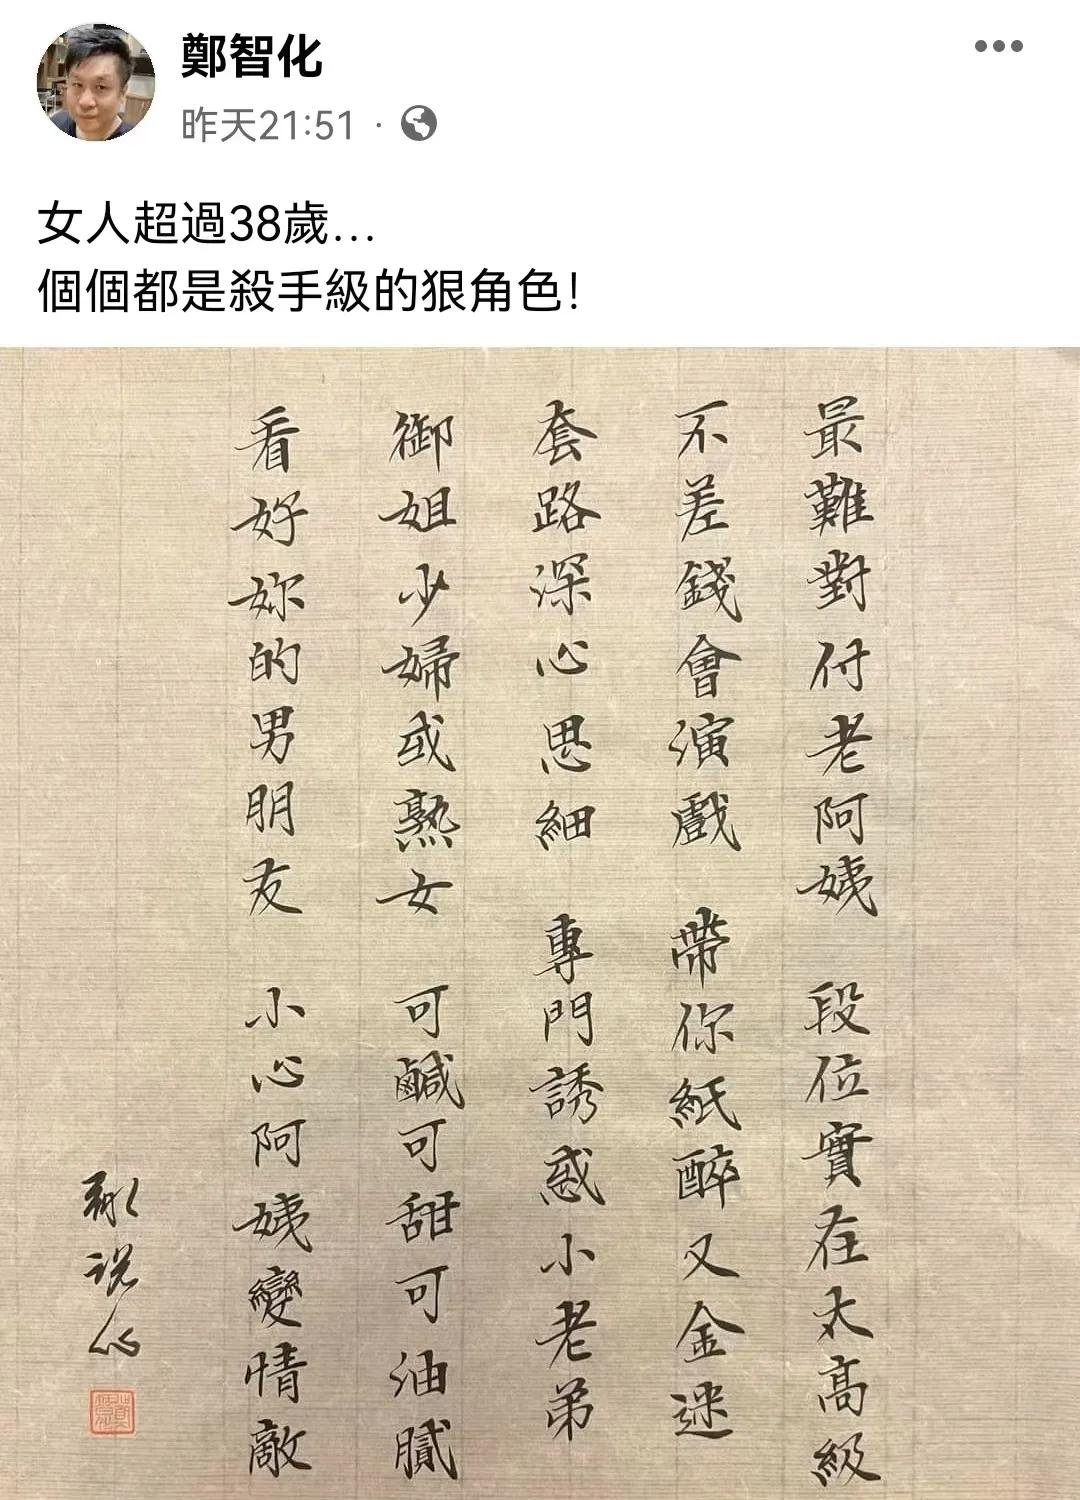 鄭智化
昨天21:51 ·
女人超過38歲…
個個都是殺手級的狠角色!
最難對付老阿姨 段位實在太高級
不差錢會演戲 帶你紙醉又金迷
套路深心思細 專門誘惑小老弟
御姐少婦或熟女 可鹹可甜可油膩
看好妳的男朋友 小心阿姨變情敵
说